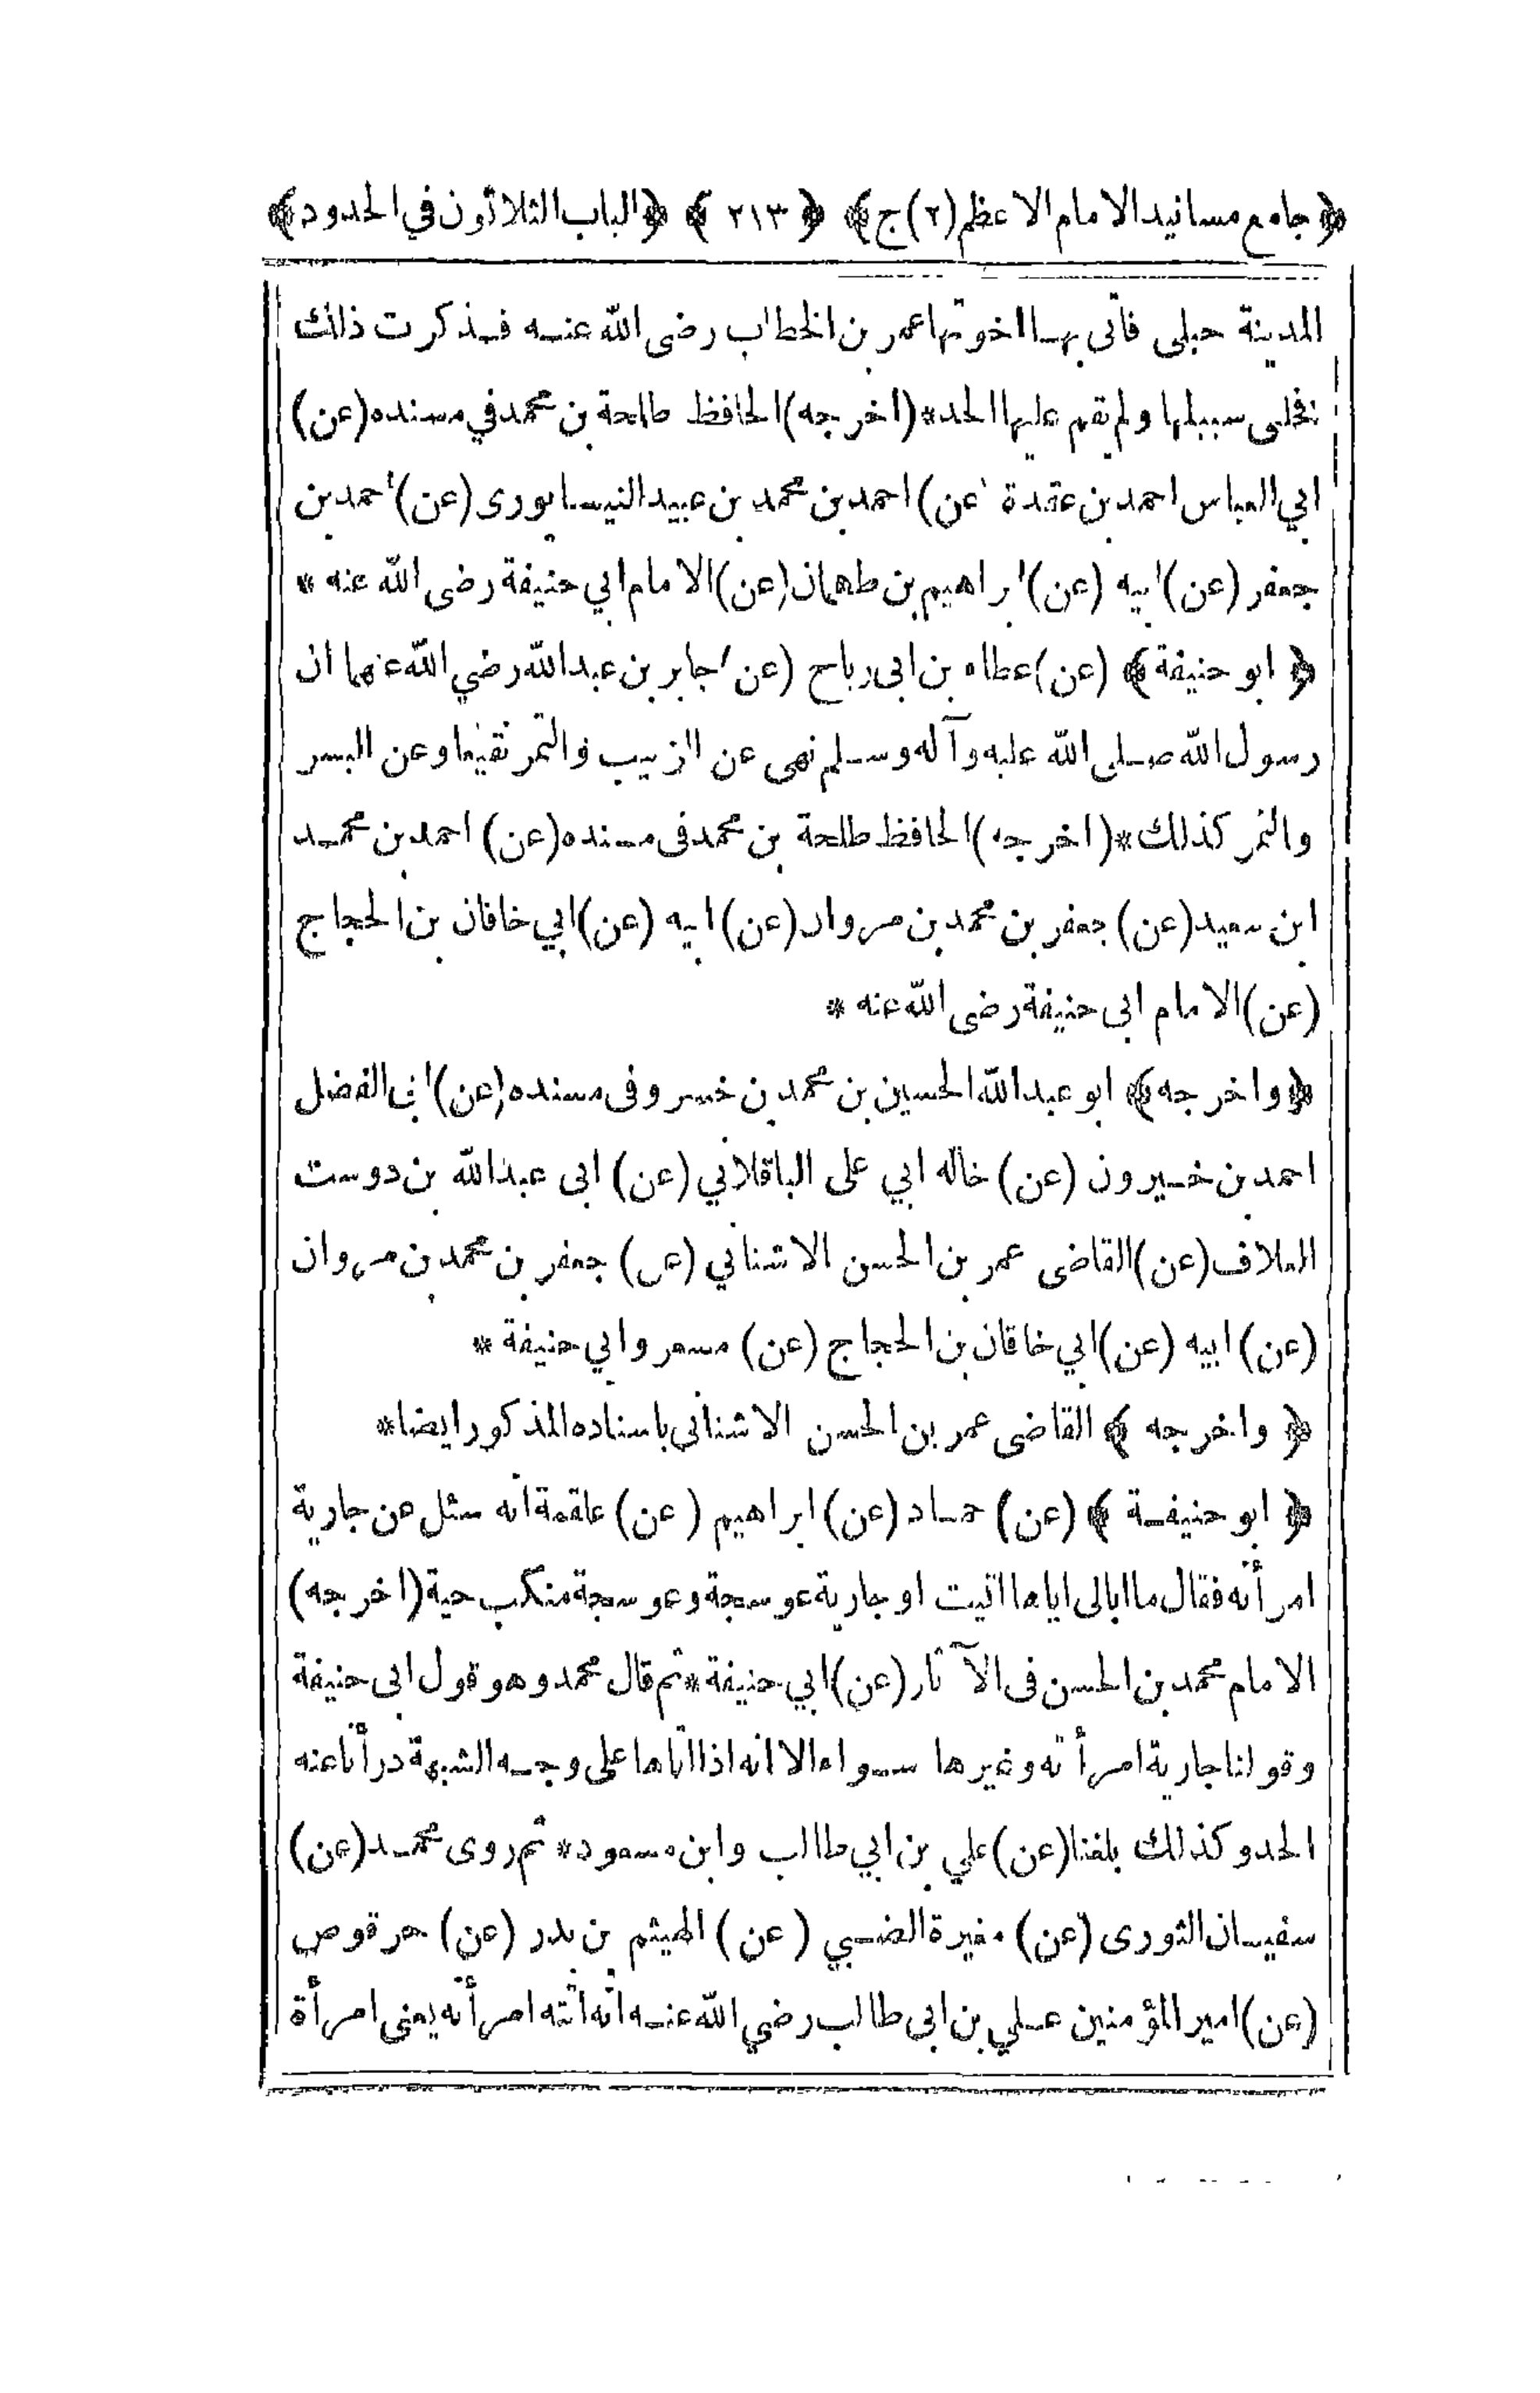 ﴿جامع مسانيد الامام الاعظم (٢) ج﴾ ﴿ ٢١٣ ﴾ ﴿الباب الثلاثون في الحدود﴾
المدينة حبلى فأتى بها اخوتها عمر بن الخطاب رضى الله عنه فذكرت ذلك
فخلى سبيلها ولم يقم عليها الحد * (اخرجه) الحافظ طلحة بن محمد في مسنده (عن)
ابي العباس احمد بن عقدة (عن) احمد بن محمد بن عبيد النيسابورى (عن) احمد بن
جعفر (عن) ابيه (عن) ابراهيم بن طهمان (عن) الامام ابي حنيفة رضى الله عنه *
﴿ ابو حنيفة ﴾ (عن) عطاء بن ابى رباح (عن) جابر بن عبد الله رضي الله عنهما ان
رسول الله صلى الله عليه وآله وسلم نهى عن الزبيب والتمر نقيعا وعن البسر
والتمر كذلك * (اخرجه) الحافظ طلحة بن محمد فى مسنده (عن) احمد بن محمد
ابن سعيد (عن) جعفر بن محمد بن مروان (عن) ابيه (عن) ابي خاقان بن الحجاج
(عن) الامام ابى حنيفة رضى الله عنه *
﴿واخرجه﴾ ابو عبد الله الحسين بن محمد بن خسرو فى مسنده (عن) ابى الفضل
احمد بن خيرون (عن) خاله ابي على الباقلاني (عن) ابى عبد الله بن دوست
العلاف (عن) القاضى عمر بن الحسن الاشناني (عن) جعفر بن محمد بن مروان
(عن) ابيه (عن) ابي خاقان بن الحجاج (عن) مسعر وابي حنيفة *
﴿ واخرجه ﴾ القاضى عمر بن الحسن الاشنانى باسناده المذكور ايضا *
﴿ ابو حنيفة ﴾ (عن) حماد (عن) ابراهيم (عن) علقمة انه سئل عن جارية
امرأته فقال ما ابالى اياها اتيت او جارية عوسجة وعوسجة منكب حية (اخرجه)
الامام محمد بن الحسن فى الآثار (عن) ابي حنيفة * ثم قال محمد وهو قول ابى حنيفة
وقولنا جارية امرأته وغيرها سواء الا انه اذا اتاها على وجه الشبهة درأنا عنه
الحد وكذلك بلغنا (عن) علي بن ابي طالب وابن مسعود * ثم روى محمد (عن)
سفيان الثورى (عن) مغيرة الضبي (عن) الهيثم بن بدر (عن) حرقوص
(عن) امير المؤمنين علي بن ابى طالب رضي الله عنه انه اتته امرأته يعنى امرأة